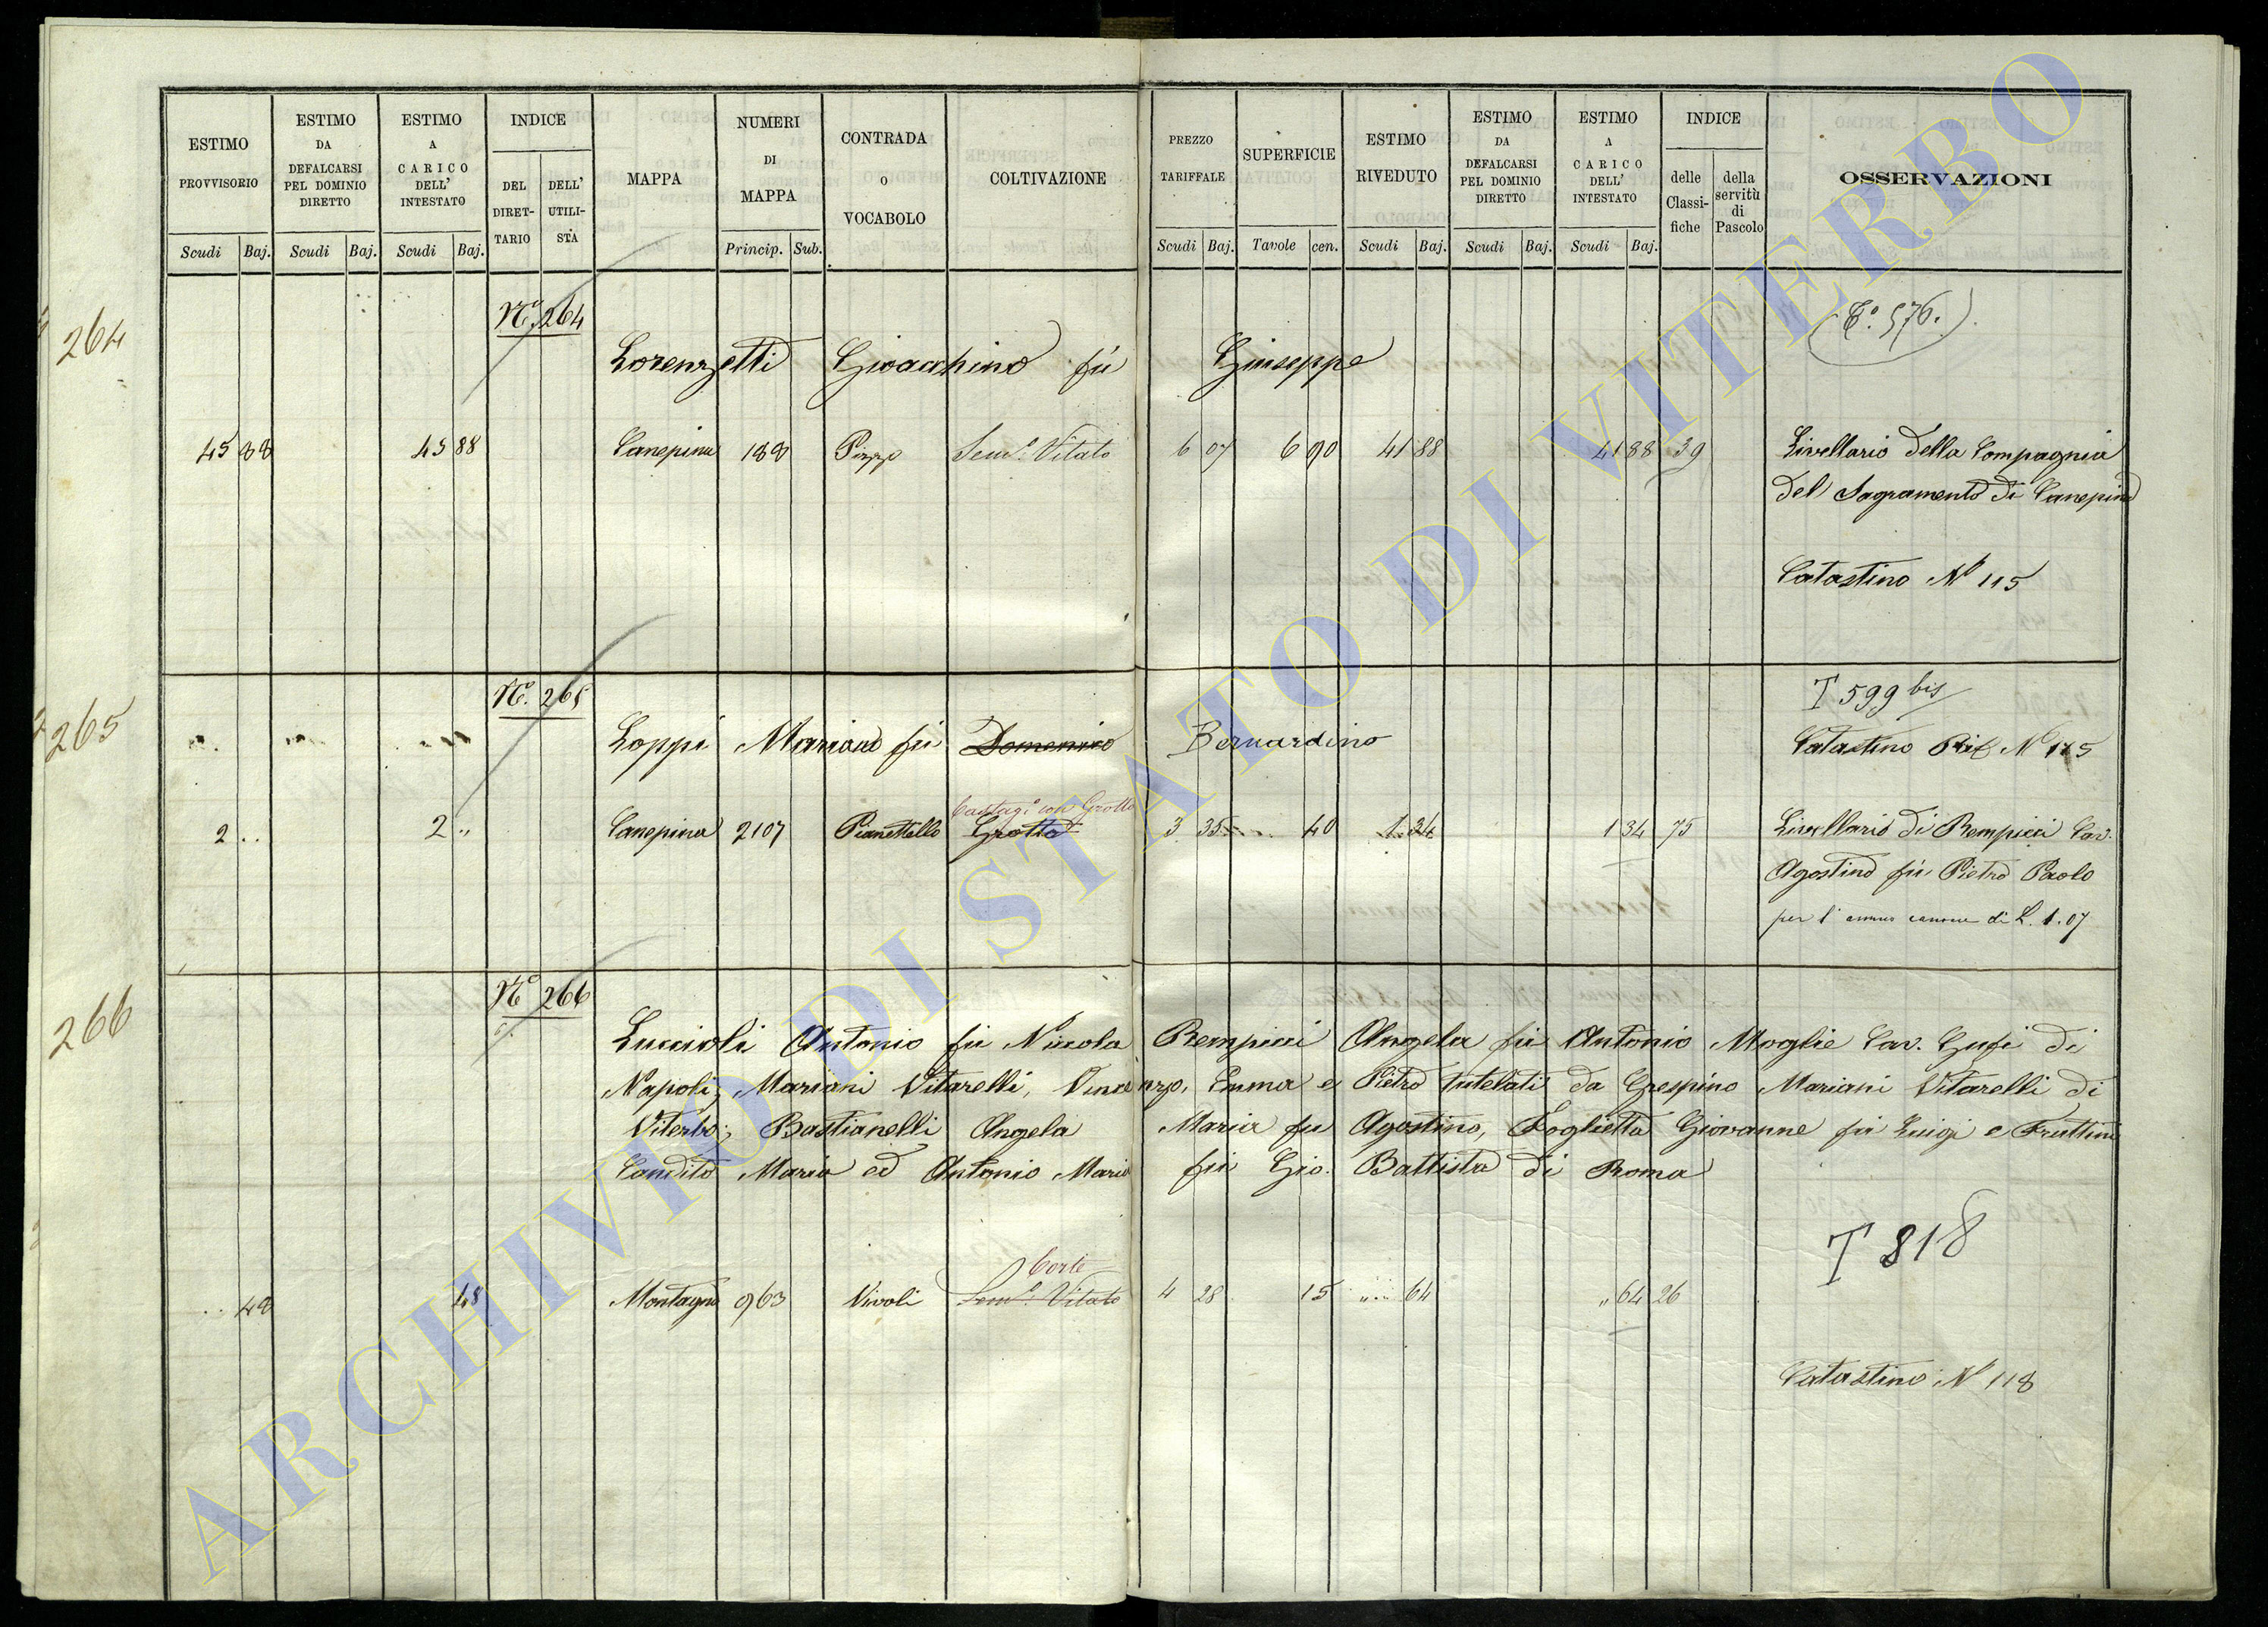 ESTIMO PROVVISORIO Scudi Baj.
ESTIMO DA DEFALCARSI PEL DOMINIO DIRETTO Scudi Baj.
ESTIMO A CARICO DELL' INTESTATO Scudi Baj.
INDICE DEL DIRET-TARIO DELL' UTILI-STA
MAPPA
NUMERI DI MAPPA Princip. Sub.
CONTRADA O VOCABOLO
COLTIVAZIONE
PREZZO TARIFFALE Scudi Baj.
SUPERFICIE Tavole cen.
ESTIMO RIVEDUTO Scudi Baj.
ESTIMO DA DEFALCARSI PEL DOMINIO DIRETTO Scudi Baj.
ESTIMO A CARICO DELL' INTESTATO Scudi Baj.
INDICE delle Classi-fiche della servitù di Pascolo
OSSERVAZIONI
264 N.º 264
Lorenzetti Gioacchino fù Giuseppe
(T.º 576.)
45 88 45 88 Canepina 188 Pozzo Sem.º Vitato 6 07 6 90 41 88 41 88 39 Livellario della Compagnia
del Sagramento di Canepina
Catastino Nº 115
265 N.º 265
T 599 bis
Loppi Mariano fù Domenico Bernardino Catastino Nº 115
Castag.º con Grotta
2 .. 2 " Canepina 2107 Pianettello Grotta 3 35 40 1 34 1 34 75 Livellario di Rempicci Cav.
Agostino fù Pietro Paolo
per l'annuo canone di L. 1.07
266 N.º 266
Luccioli Antonio fù Niccola Rempicci Angela fù Antonio Moglie Cav. Gufi di
Napoli; Mariani Vitarelli, Vincenzo, Emma e Pietro tutelati da Crespino Mariani Vitarelli di
Viterbo; Bastianelli Angela Maria fu Agostino, Foglietta Giovanne fù Luigi e Fruttini
Candito Maria ed Antonio Maria fù Gio. Battista di Roma
T 818
Corte
.. 48 48 Montagna 963 Vivoli Sem.º Vitato 4 28 15 " 64 " 64 26
Catastino Nº 118
ARCHIVIO DI STATO DI VITERBO